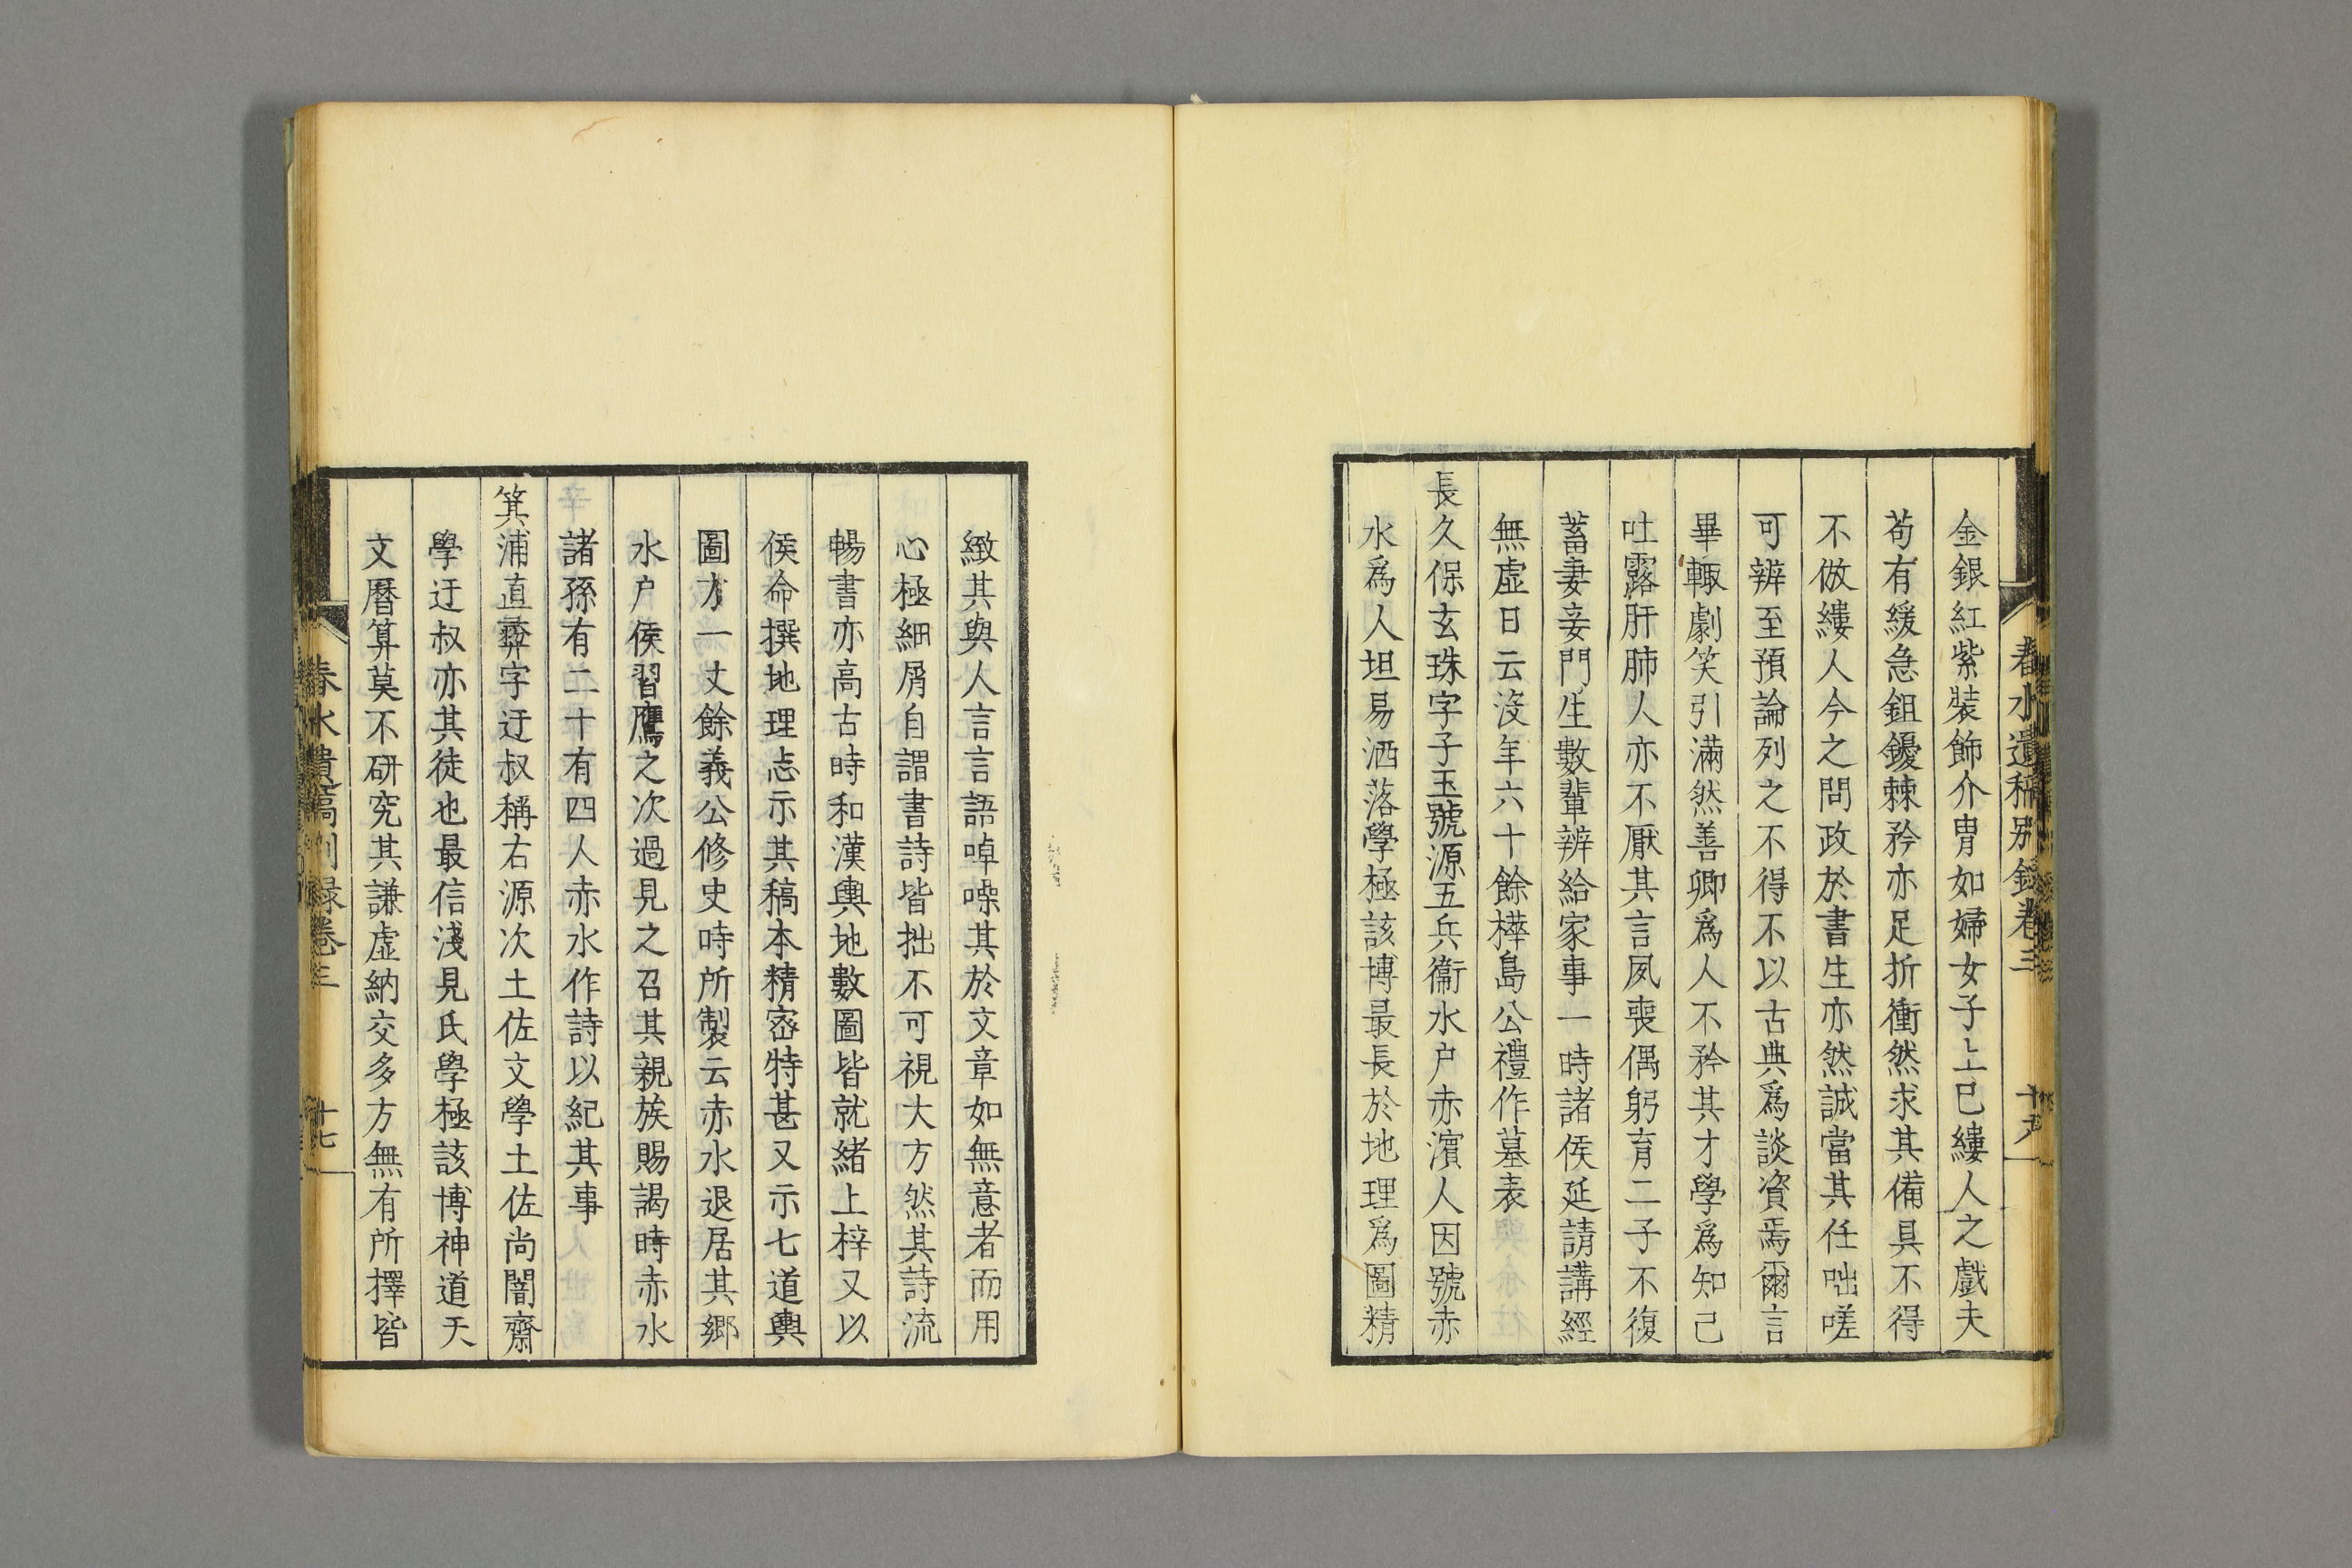 春水遺稿別錄卷三
十六
金銀紅紫裝飾介冑如婦女子上巳縷人之戲夫
苟有緩急鉏鑁棘矜亦足折衝然求其備具不得
不倣縷人今之問政於書生亦然誠當其任咄嗟
可辨至預論列之不得不以古典爲談資焉爾言
畢輙劇笑引滿然善卿爲人不矜其才學爲知己
吐露肝肺人亦不厭其言夙喪偶躬育二子不復
蓄妻妾門生數輩辨給家事一時諸侯延請講經
無虛日云沒年六十餘樺島公禮作墓表
長久保玄珠字子玉號源五兵衞水户赤濱人因號赤
水爲人坦易洒落學極該博最長於地理爲圖精
緻其與人言言語啅噪其於文章如無意者而用
心極細屑自謂書詩皆拙不可視大方然其詩流
暢書亦高古時和漢輿地數圖皆就緒上梓又以
侯命撰地理志示其稿本精宻特甚又示七道輿
圖方一丈餘義公修史時所製云赤水退居其郷
水户侯習鷹之次過見之召其親族賜謁時赤水
諸孫有二十有四人赤水作詩以紀其事
箕浦直彜字迂叔稱右源次土佐文學土佐尚闇齋
學迂叔亦其徒也最信淺見氏學極該博神道天
文曆算莫不研究其謙虛納交多方無有所擇皆
春水遺稿別録卷三
十七